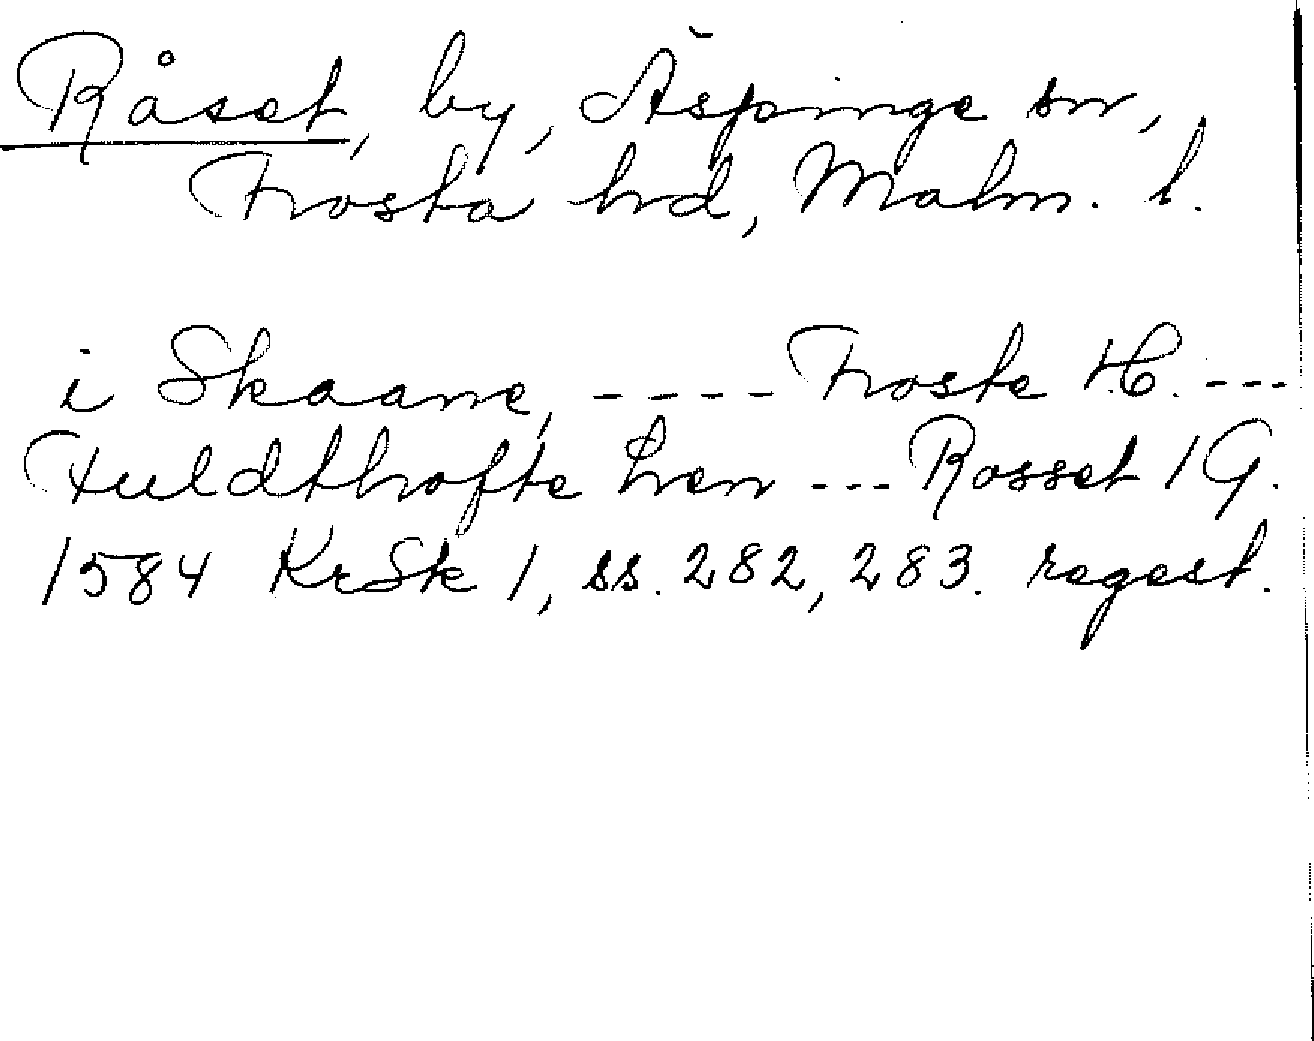 Råset, by, Äspinge sn,
Frosta hd, Malm. l.
i Skaane, ---- Froste H. ---
Fuldthofte Len --- Rosset 1 G.
1584 KrSk 1, ss. 282, 283. regest.